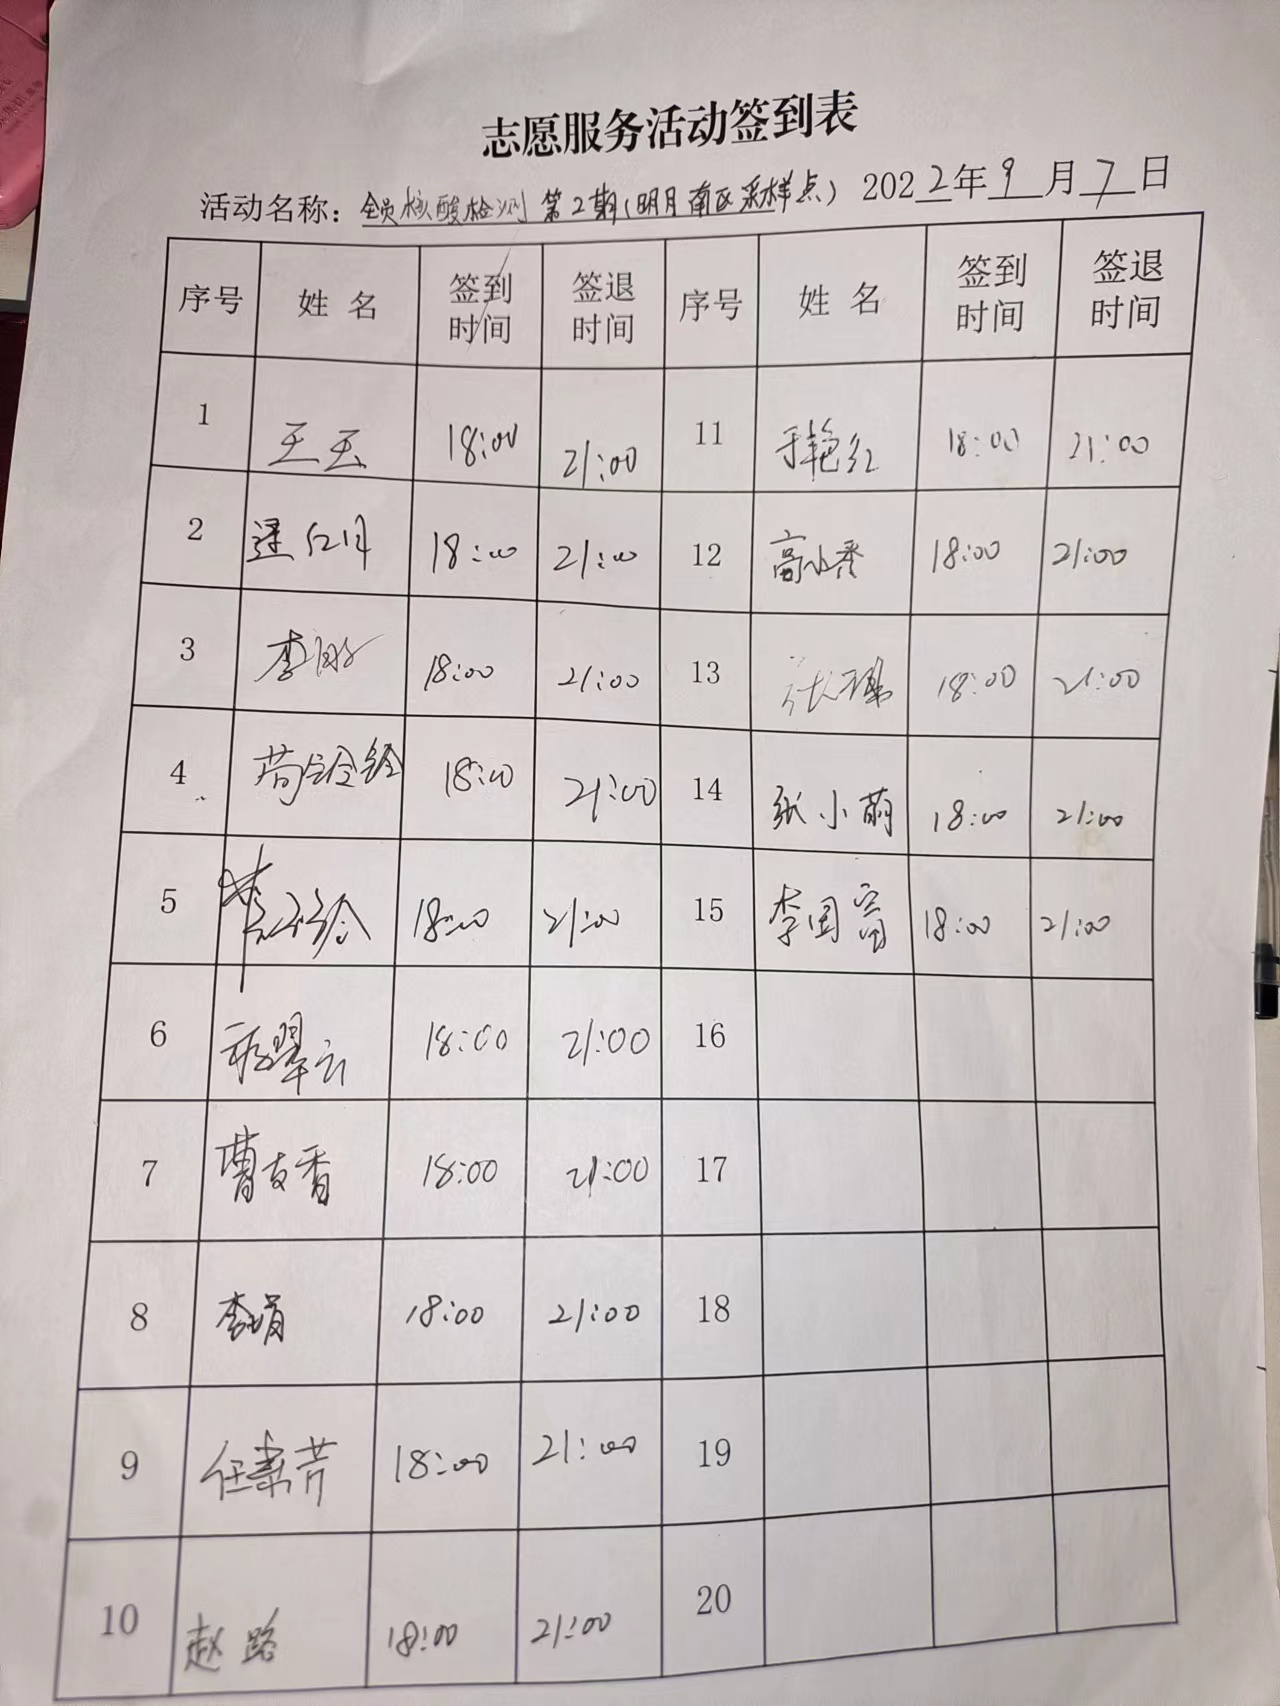 志愿服务活动签到表
活动名称：全员核酸检测第2期(明月南区采样点) 2022年9月7日
序号 姓名 签到时间 签退时间 序号 姓名 签到时间 签退时间
1 王玉 18:00 21:00 11 于艳红 18:00 21:00
2 18:00 21:00 12 高小香 18:00 21:00
3 李 18:00 21:00 13 张 18:00 21:00
4 18:00 21:00 14 张小萌 18:00 21:00
5 18:00 21:00 15 李国富 18:00 21:00
6 翠云 18:00 21:00 16
7 曹友香 18:00 21:00 17
8 李娟 18:00 21:00 18
9 任素芳 18:00 21:00 19
10 赵路 18:00 21:00 20